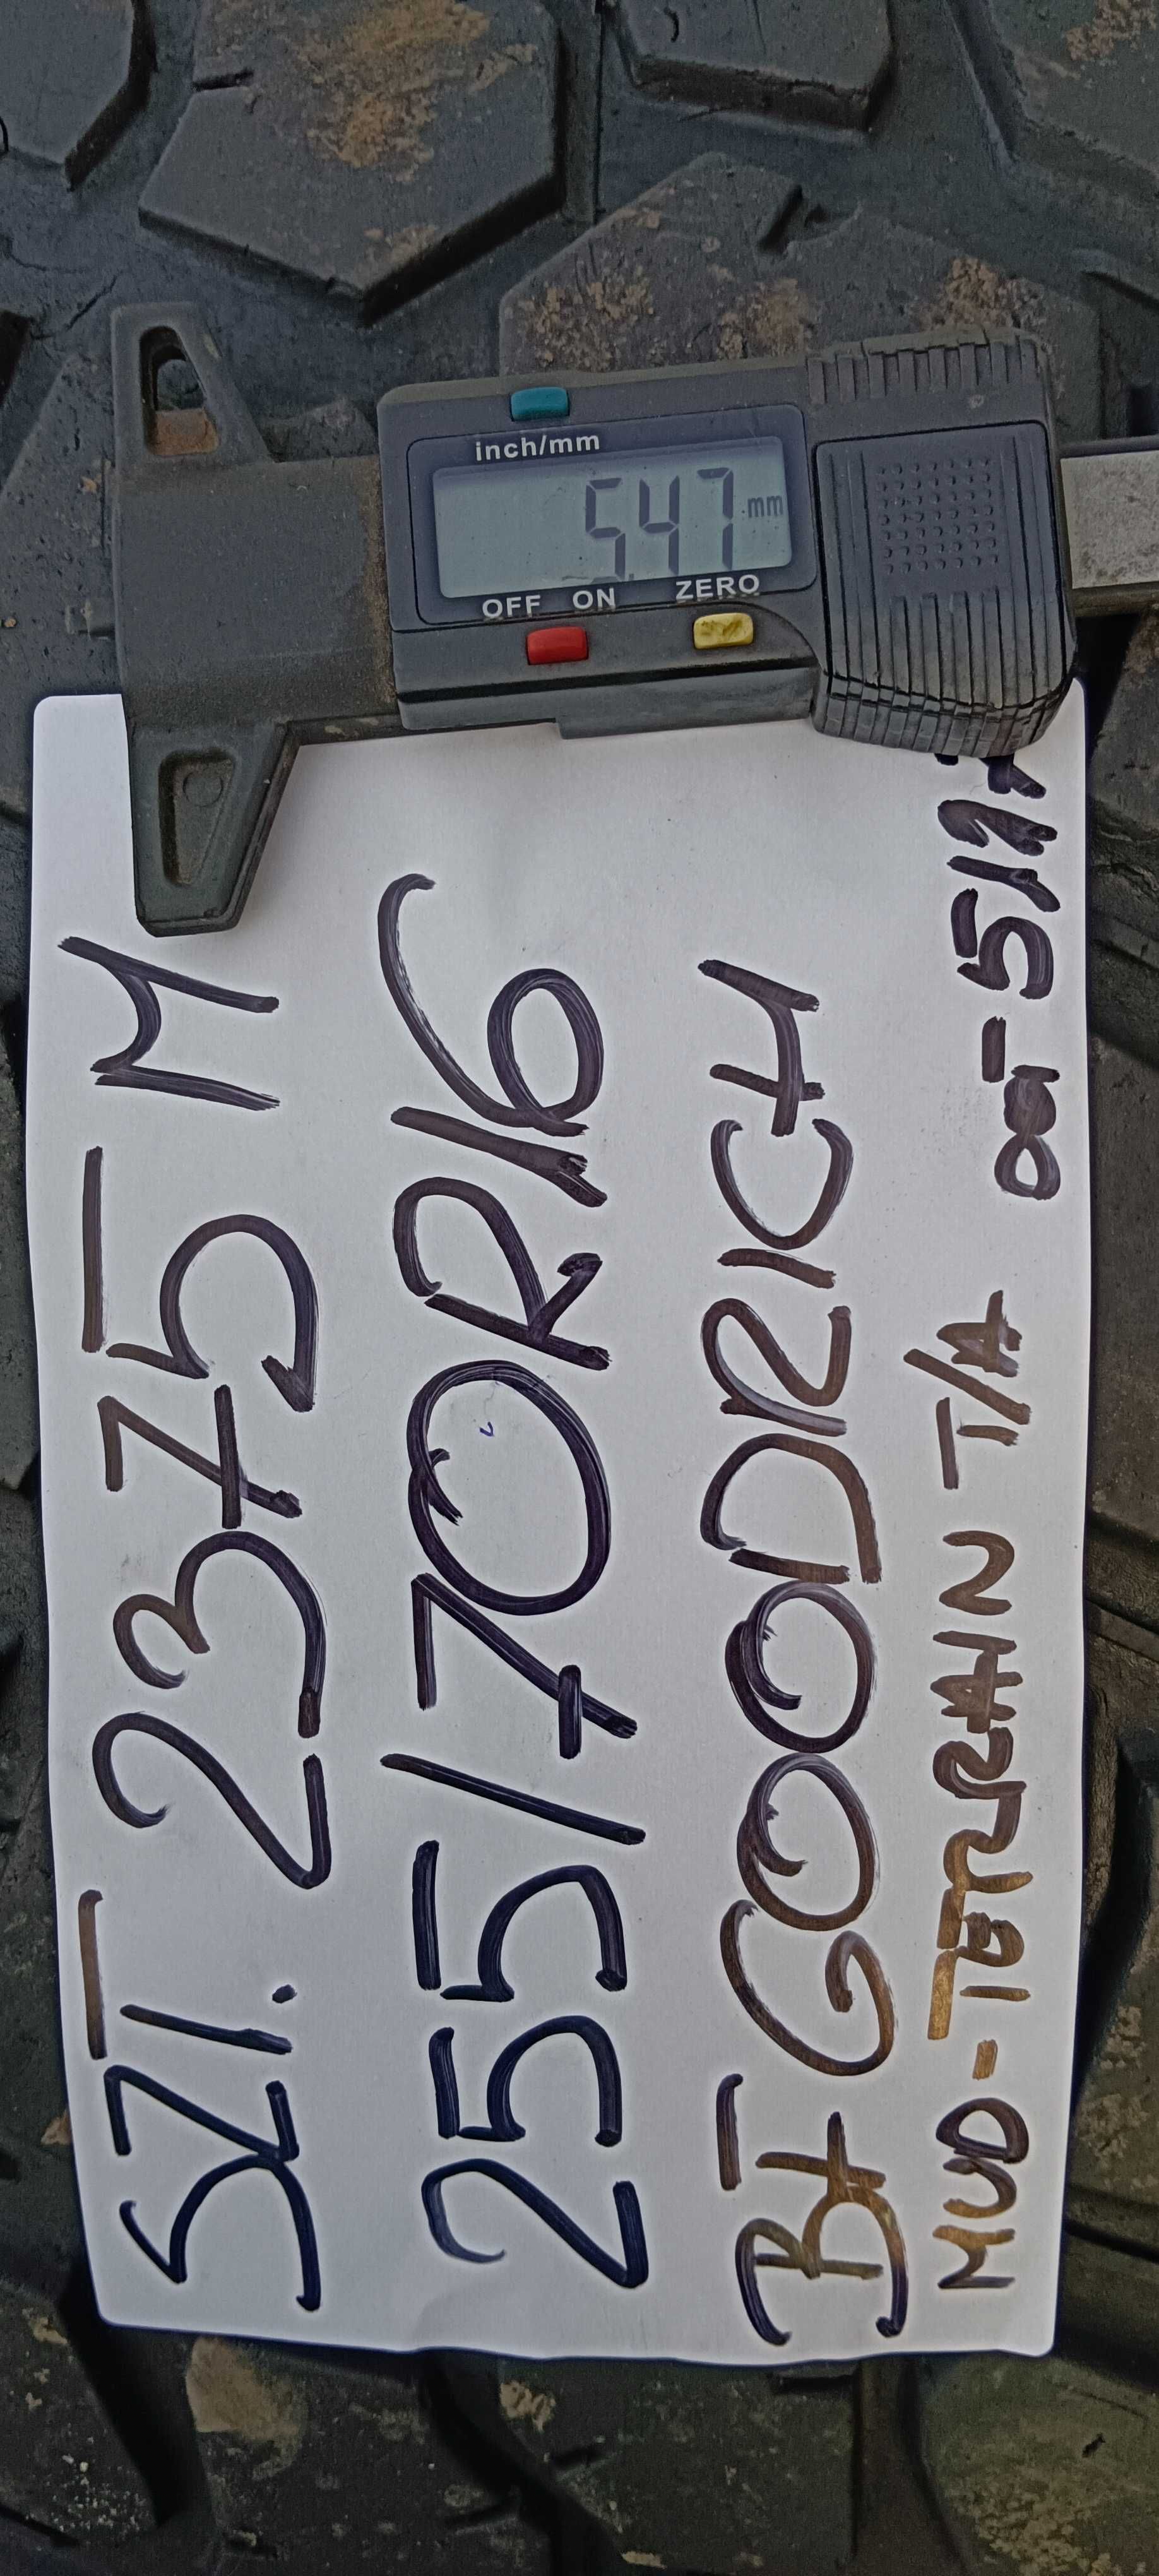 inch/mm
5.47 mm
OFF ON ZERO
SZT. 2375 M
255/70R16
BF GOODRICH
MUD-TERRAIN T/A